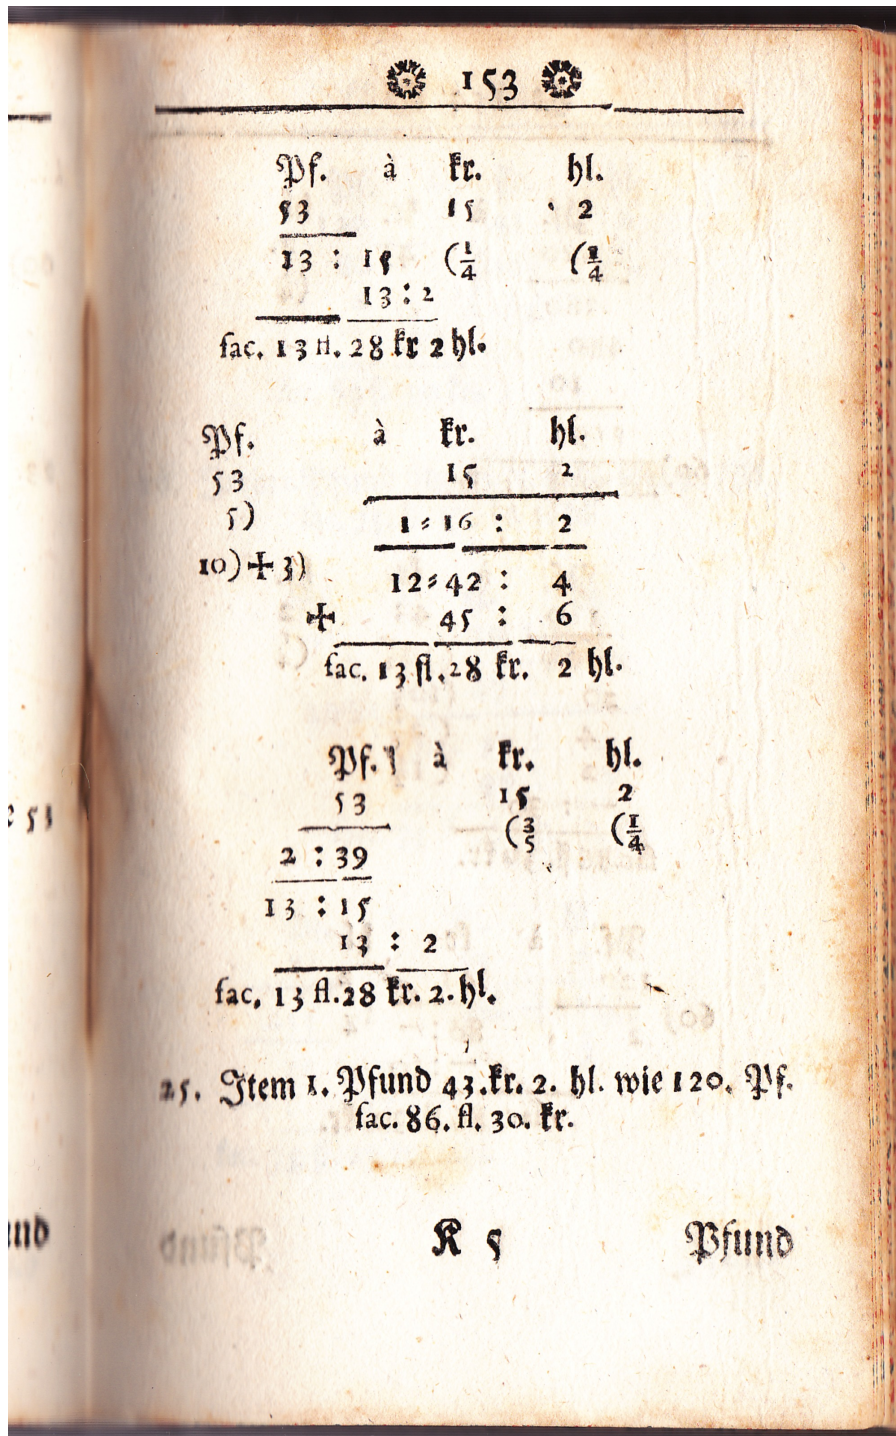 153
Pf. à kr. hl.
53 15 2
13 : 15 (1/4 (1/4
13 : 2
fac. 13 fl. 28 kr 2 hl.
Pf. à kr. hl.
53 15 2
5) 1 = 16 : 2
10) + 3) 12 = 42 : 4
+ 45 : 6
fac. 13 fl. 28 kr. 2 hl.
Pf. à kr. hl.
53 15 2
(3/5 (1/4
2 : 39
13 : 15
13 : 2
fac. 13 fl. 28 kr. 2. hl.
25. Item 1. Pfund 43. kr. 2. hl. wie 120. Pf.
fac. 86. fl. 30. kr.
K 5 Pfund